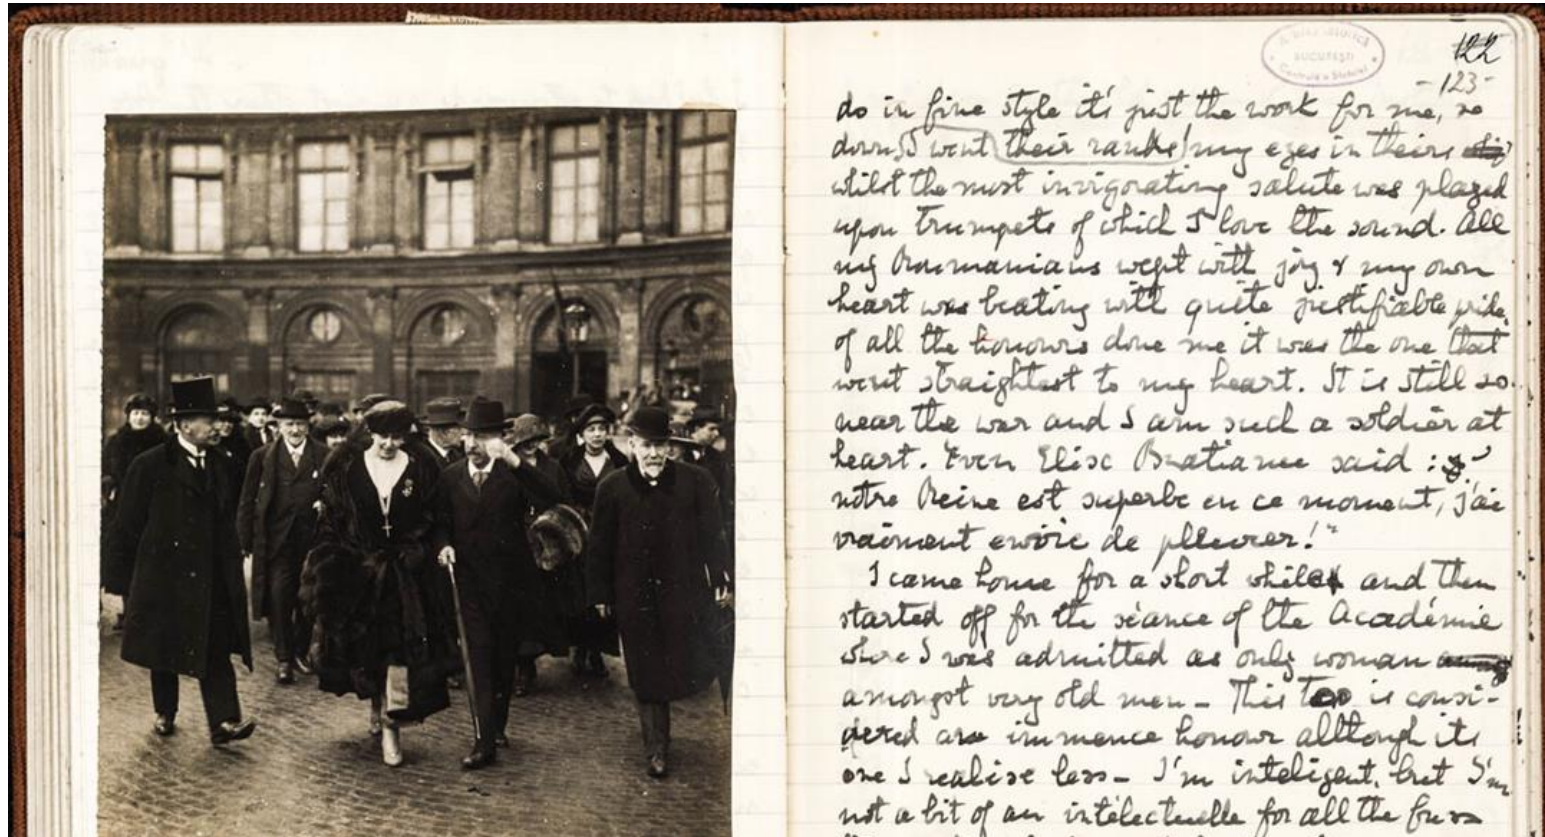 BUCUREȘTI
122
-123-
do in fine style it's just the work for me, so
down I went their ranks! my eyes in theirs
whilst the most invigorating salute was played
upon trumpets of which I love the sound. All
my Roumanians wept with joy & my own
heart was beating with quite justifiable pride,
of all the honours done me it was the one that
went straightest to my heart. It is still so
near the war and I am such a soldier at
heart. Even Elise Bratianu said : "
notre Reine est superbe en ce moment, j'ai
vraiment envie de pleurer!"
I came home for a short while and then
started off for the séance of the Académie
where I was admitted as only woman
amongst very old men - This too is consi-
dered an immence honour although its
one I realise less - I'm inteligent, but I'm
not a bit of an intélectuelle for all the fuss